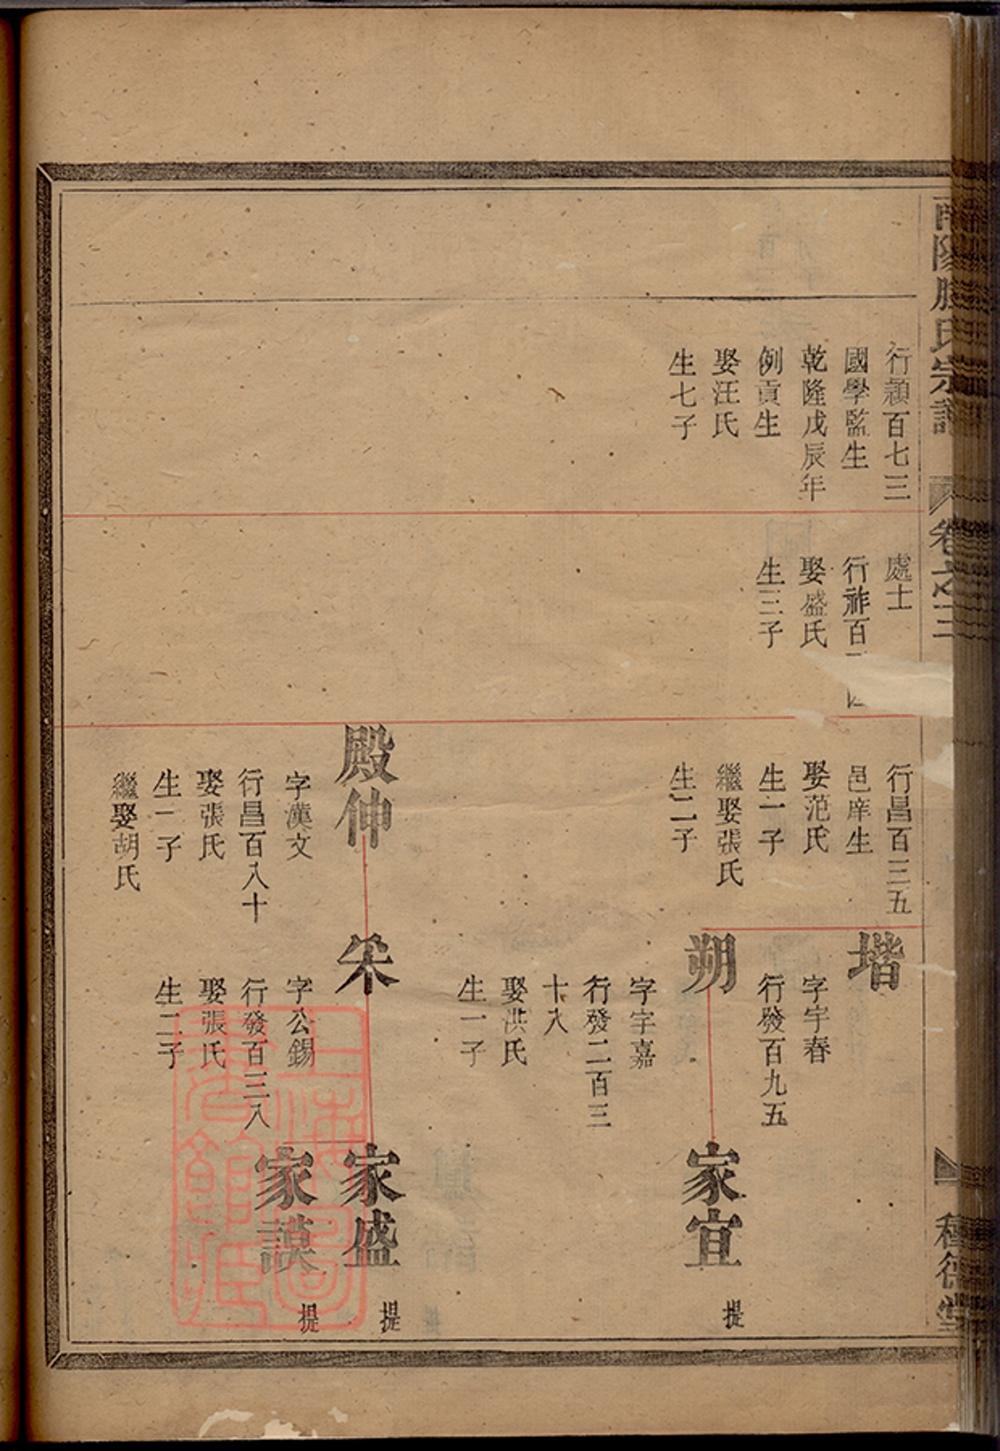 南陽滕氏宗譜
卷之三
種德堂
行穎百七三
國學監生
乾隆戊辰年
例貢生
娶汪氏
生七子
處士
行祚百
娶盛氏
生三子
行昌百三五
邑庠生
娶范氏
生一子
繼娶張氏
生二子
殿伸
字漢文
行昌百八十
娶張氏
生一子
繼娶胡氏
堦
字宇春
行發百九五
朔
字宇嘉
行發二百三
十八
娶洪氏
生一子
字公錫
行發百三八
娶張氏
生二子
家宜
提
家盛
提
家謨
提
上海圖書館藏